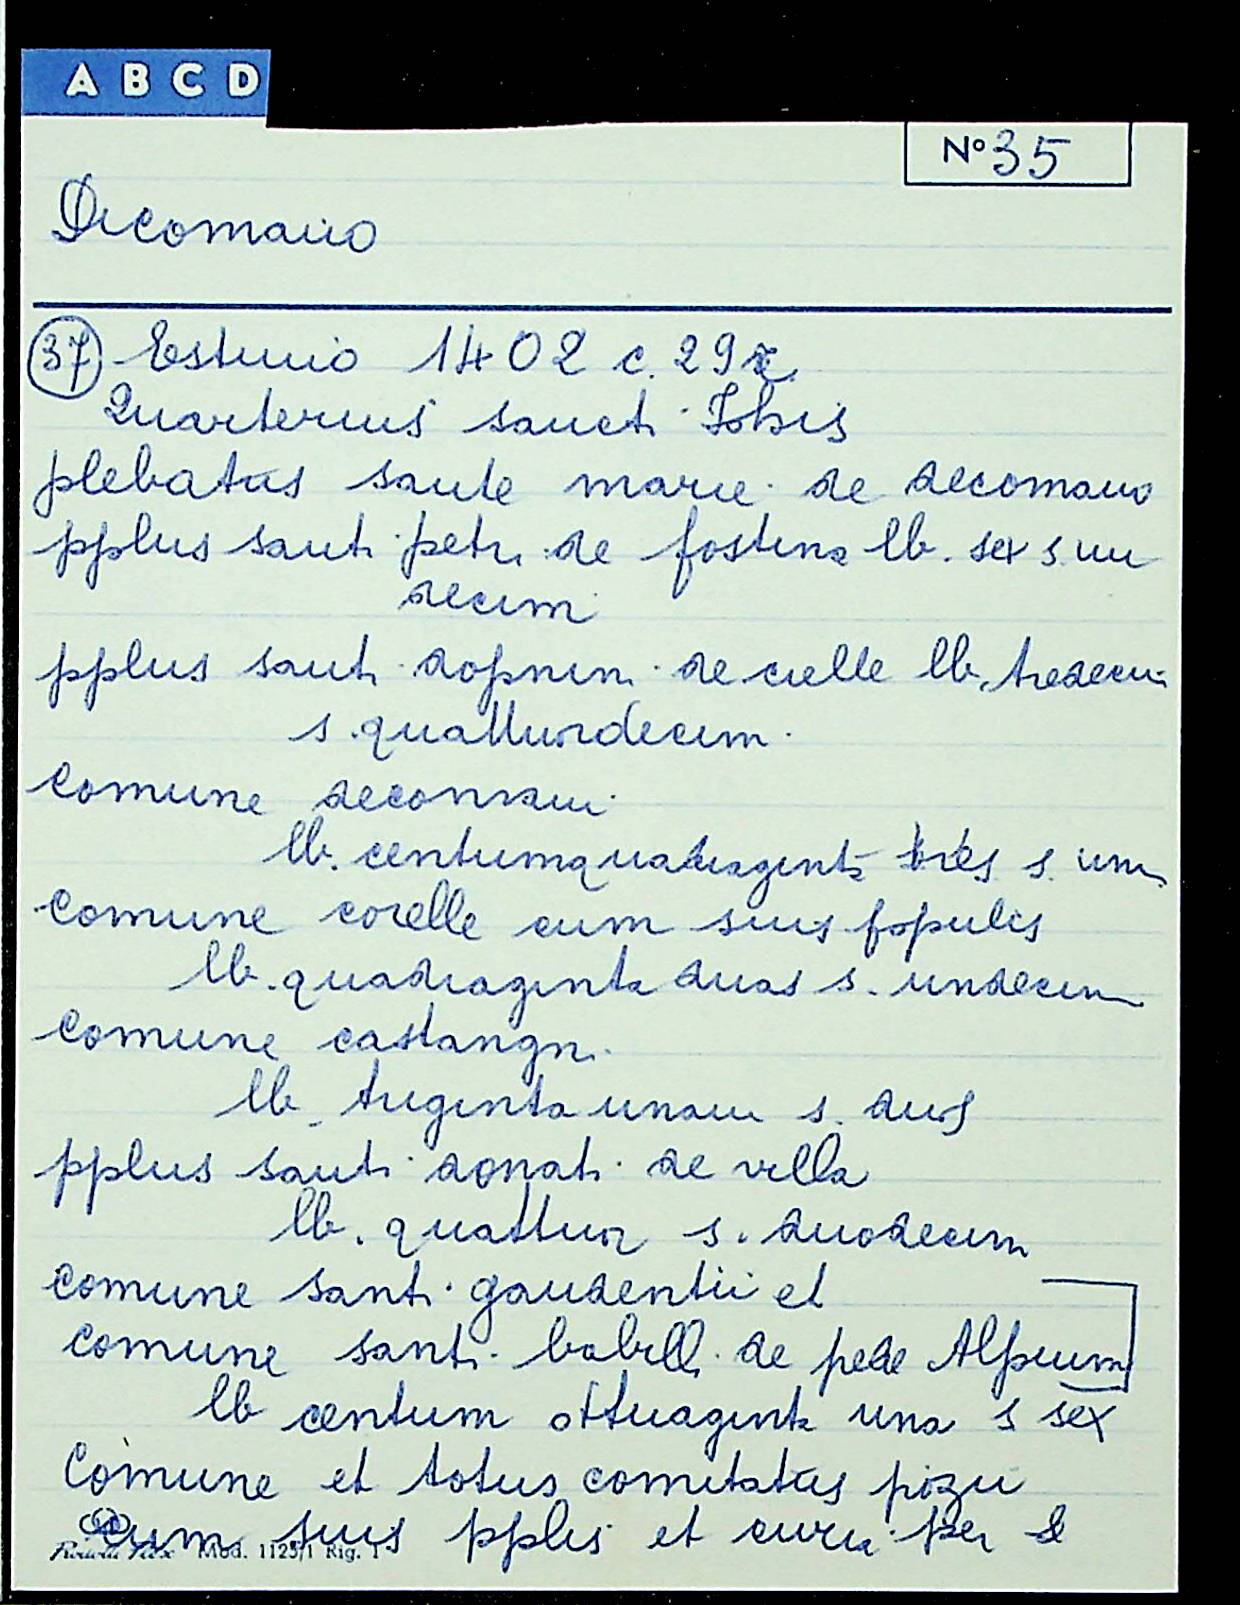 A B C D
N° 35
Dicomano
37 Estimo 1402 c. 29
Quarterius sancti Johis
plebatus sante marie de decomano
pplus santi petri de fostina lb. sex s. un
decim
pplus santi dopnini de cielle lb. tredecim
s. quattuordecim
Comune decomani
lb. centumquadraginta tres s. uno
Comune corelle cum suis populis
lb. quadraginta duas s. undecim
Comune castangni
lb. triginta unam s. duos
pplus santi donati de villa
lb. quattuor s. duodecim
Comune santi gaudentii et
comune santi babilli de pede Alpium
lb centum ottuaginta una s sex
Comune et totus comitatus pozii
cum suis pplis et curia per
Mod. 1125/1 Rig. 1